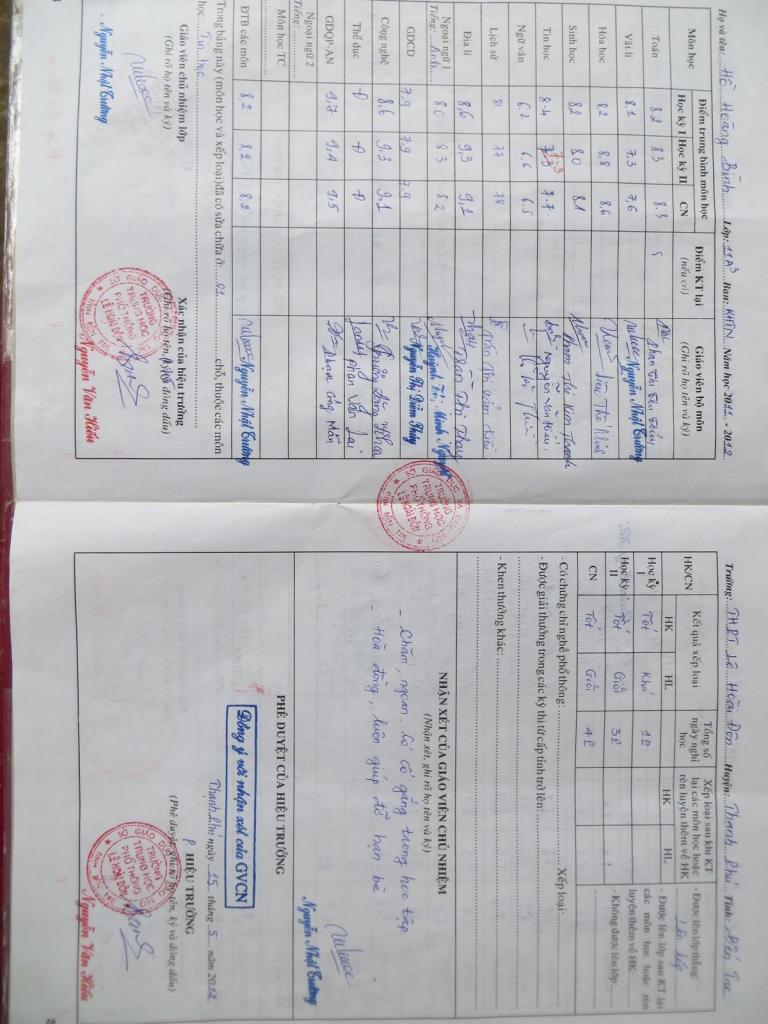 Họ và tên: Hồ Hoàng Bình Lớp: 11A3 Ban: KHTN Năm học 2011 - 2012
Môn học
Điểm trung bình môn học
Điểm KT lại
(nếu có)
Giáo viên bộ môn
(Ghi rõ họ tên và ký)
Học kỳ I Học kỳ II CN
Toán 8.2 8.3 8.3
Vật lí 8,1 7,3 7,6 Nguyễn Nhật Trường
Hóa học 8.2 8,8 8.6
Sinh học 8.2 8.0 8.1 Phạm Thị Kim Thanh
Tin học 8.4 7.3 7.7
Ngữ văn 6.2 6.6 6.5
Lịch sử 81 77 78
Địa lí 8,6 9,3 9,1
Ngoại ngữ 1
Tiếng: Anh 8.0 8.3 8.2
GDCD 7.9 7.9 7.9 Nguyễn Thị Diễm Thúy
Công nghệ 8.6 9.3 9,1
Thể dục Đ Đ Đ Phan Văn Lai
GDQP-AN 9,7 9,4 9,5 Phan Công Mẫn
Ngoại ngữ 2
Tiếng:
Môn học TC
ĐTB các môn 8,2 8,2 8,2 Nguyễn Nhật Trường
Trong bảng này (môn học và xếp loại) đã có sửa chữa ở: 01 chỗ, thuộc các môn
học: Tin học
Giáo viên chủ nhiệm lớp
(Ghi rõ họ tên và ký)
Nguyễn Nhật Trường
Xác nhận của hiệu trưởng
(Ghi rõ họ tên, ký và đóng dấu)
TRƯỜNG
TRUNG HỌC
PHỔ THÔNG
LÊ HOÀI ĐÔN
Nguyễn Văn Hiếu
Trường: THPT Lê Hoài Đôn Huyện: Thạnh Phú Tỉnh: Bến Tre
HK/CN
Kết quả xếp loại
HK HL
Tổng số
ngày nghỉ
học
Xếp loại sau khi KT
lại các môn học hoặc
rèn luyện thêm về HK
HK HL
- Được lên lớp thẳng:
Lên lớp
- Được lên lớp sau KT lại
các môn học hoặc rèn
luyện thêm về HK:
- Không được lên lớp:
Học kỳ
I Tốt Khá 1P
Học kỳ
II Tốt Giỏi 3P
CN Tốt Giỏi 4P
- Có chứng chỉ nghề phổ thông: Xếp loại:
- Được giải thưởng trong các kỳ thi từ cấp tỉnh trở lên:
- Khen thưởng khác:
NHẬN XÉT CỦA GIÁO VIÊN CHỦ NHIỆM
(Nhận xét, ghi rõ họ tên và ký)
- Chăm, ngoan. Có cố gắng trong học tập
- Hoà đồng, luôn giúp đỡ bạn bè
Nguyễn Nhật Trường
PHÊ DUYỆT CỦA HIỆU TRƯỞNG
Đồng ý với nhận xét của GVCN
Thạnh Phú ngày 15 tháng 5 năm 2012
P HIỆU TRƯỞNG
(Phê duyệt, ghi rõ họ tên, ký và đóng dấu)
TRƯỜNG
TRUNG HỌC
PHỔ THÔNG
LÊ HOÀI ĐÔN
Nguyễn Văn Hiếu